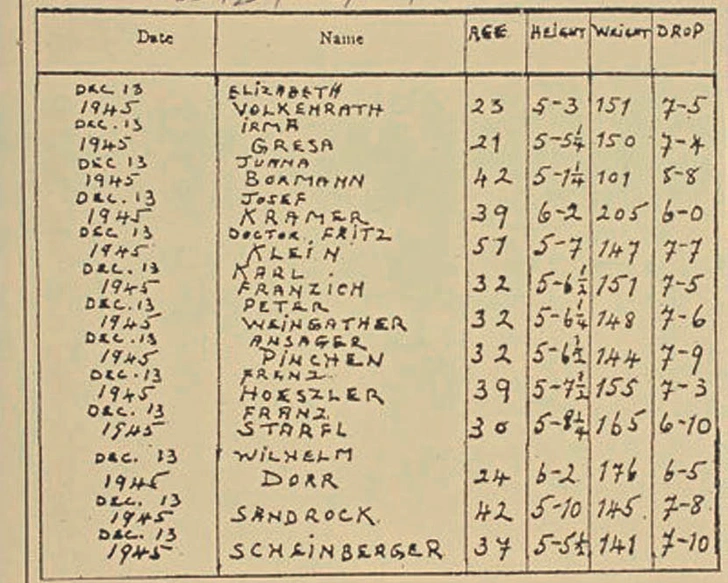 Date Name AGE HEIGHT WEIGHT DROP
DEC 13 ELIZABETH
1945 VOLKENRATH 23 5-3 151 7-5
DEC. 13 IRMA
1945 GRESA 21 5-5¼ 150 7-4
DEC 13 JUANA
1945 BORMANN 42 5-1¼ 101 8-8
DEC. 13 JOSEF
1945 KRAMER 39 6-2 205 6-0
DEC 13 DOCTOR. FRITZ
1945 KLEIN 57 5-7 147 7-7
DEC. 13 KARL
1945 FRANZICH 32 5-6½ 151 7-5
DEC. 13 PETER
1945 WEINGATHER 32 5-6¼ 148 7-6
DEC. 13 ANSAGER
1945 PINCHEN 32 5-6½ 144 7-9
DEC. 13 FRENZ
1945 HOESZLER 39 5-7½ 155 7-3
DEC. 13 FRANZ
1945 STARFL 30 5-8¼ 165 6-10
DEC. 13 WILHELM
1945 DORR 24 6-2 176 6-5
DEC. 13
1945 SANDROCK. 42 5-10 145 7-8
DEC. 13
1945 SCHEINBERGER 37 5-5½ 141 7-10